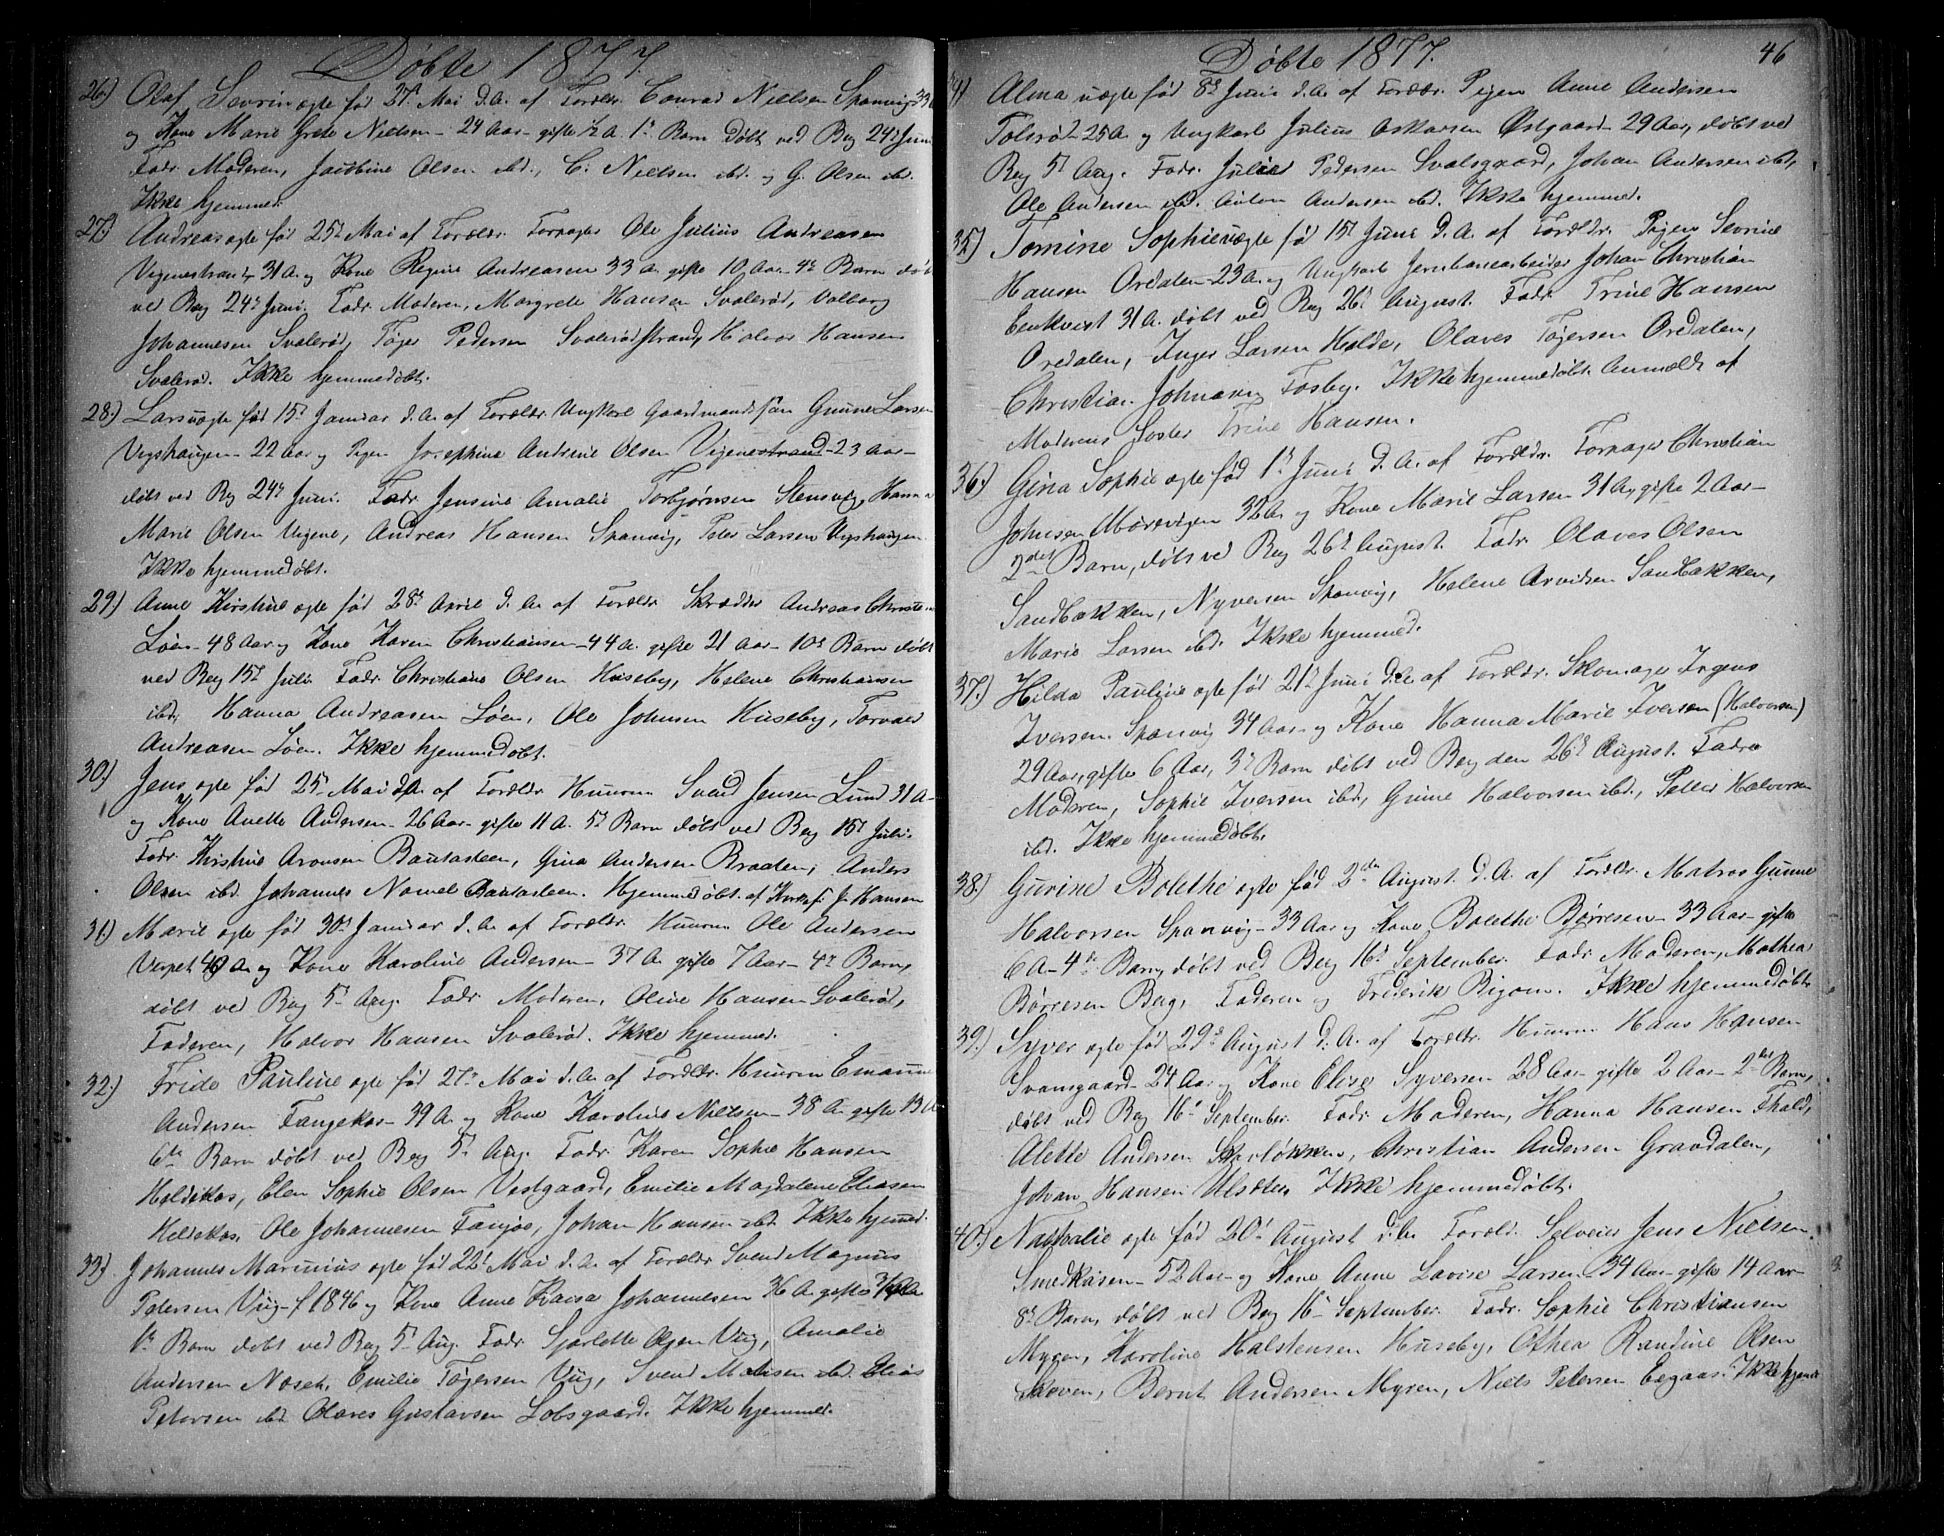 Døbte 1877.
26.) Olaf Sevrin ægte fød 27d Mai d. A. af Forældr. Conrad Nielsen Spærvig 33
og Kone Marie Grete Nielsen - 24 Aar - gifte ½ A. 1t Barn Døbt ved Bey 24d Juni
Fadr. Moderen, Jacobine Olsen ibd., C. Nielsen ibd. og G. Olsen ibd.
Ikke hjemmed.
27.) Andreas ægte fød 25d Mai af Forældr. Forpagter Ole Julius Andreasen
Vigenestrand 31 A. og Kone Regine Andreasen 33 A. gifte 10 Aar - 4d Barn døbt
ved Bey 24d Juni. Fadr. Moderen, Margrete Hansen Svalerød, Valborg
Johannesen Svalerød, Tøger Pedersen Svalerødstrand, Halvor Hansen
Svalerød. Ikke hjemmedøbt.
28.) Lars uægte fød 15d Januar d. A. af Forældr. Ungkarl Gaardmandssøn Gunne Larsen
Vigshaugen - 22 Aar og Pigen Josephine Andrine Olsen Vigenestrand - 23 Aar -
døbt ved Bey 24d Juni. Fadr. Jensine Amalie Torbjørnsen Stensvig, Hanna
Marie Olsen Vigene, Andreas Hansen Spærvig, Peter Larsen Vigshaugen.
Ikke hjemmedøbt.
29.) Anne Kirstine ægte fød 28d April d. A. af Forældr. Skrædder Andreas Christen
Løen - 48 Aar og Kone Karen Christiansen - 44 A. gifte 21 Aar - 10d Barn døbt
ved Bey 15d Juli. Fadr. Christiane Olsen Huseby, Helene Christiansen
ibd., Hanna Andreasen Løen, Ole Johnsen Huseby, Torvald
Andreasen Løen. Ikke hjemmedøbt.
30.) Jens ægte fød 25d Mai d. A. af Forældr. Huusm Svend Jensen Lund 31 A -
og Kone Anette Andersen - 26 Aar - gifte 11 A. 5d Barn døbt ved Bey 15d Juli.
Fadr. Kirstine Aronsen Bautasteen, Gina Andersen Braaten, Anders
Olsen ibd. Johannes Bautasteen. Hjemmedøbt af J. Hansen
31.) Marie ægte fød 30d Januar d. A. af Forældr. Huusm Ole Andersen
Verpet 40 A. og Kone Karoline Andersen - 37 A. gifte 7 Aar - 4d Barn,
døbt ved Bey 5d Aug. Fadr. Moderen, Oline Hansen Svalerød,
Faderen, Halvor Hansen Svalerød. Ikke hjemmed.
32.) Fride Pauline ægte fød 27d Mai d. A. af Forældr. Huusm Emanuel
Andersen Fangekas - 39 A. og Kone Karoline Nielsen - 38 A. gifte 13 A
6te Barn døbt ved Bey 5d Aug. Fadr. Karen Sophie Hansen
Holdekas, Elen Sophie Olsen Vestgaard, Emilie Magdalene Eliasen
Holdekas, Ole Johannesen Johan Hansen ibd. Ikke hjemmed.
33.) Johannes Marinius ægte fød 22d Mai d. A. af Forældr. Svend Magnus
Petersen Viig - f 1846 og Kone Anne Kaisa Johannesen 36 A. gifte
6te Barn døbt ved Bey 5d Aug. Fadr. Sjarlotte Olsen Viig, Amalie
Andersen Noset, Emilie Tøgersen Viig, Svend Matisen ibd. Elias
Petersen ibd Olaves Gustavsen Lobsgaard. Ikke hjemmed.
Døbte 1877. 46
34) Alma uægte fød 8d Juni d. A. af Forældr. Pigen Anne Andersen
Tolsrød - 25 A. og Ungkarl Julius Oskarsen Østgaard - 29 Aar, døbt ved
Bey 5d Aug. Fadr. Julie Pedersen Svalsgaard, Johan Andersen ibd,
Ole Andersen ibd. Anton Andersen ibd. Ikke hjemmed.
35.) Tomine Sophie uægte fød 15d Juni d. A. af Forældr. Pigen Sevrine
Hansen Ordalen - 23 A. og Ungkarl Jernbanearbeider Johan Christian
Eenkvist 31 A. døbt ved Bey 26d August. Fadr. Trine Hansen
Oredalen, Inger Larsen Holde, Olaves Tøgersen Oredalen,
Christian Johnsen Fosby. Ikke hjemmedøbt. Anmeldt af
Moderens Søster Trine Hansen.
36.) Gina Sophie ægte fød 1d Juni d. A. af Forældr. Forpagter Christian
Johnsen Mørevigen 32 A. og Kone Marie Larsen 31 A, gifte 2 Aar -
2det Barn, døbt ved Bey 26d August. Fadr. Olaves Olsen
Sandbakken, Nyversen Spærvig, Helene Arvidsen Sandbakken,
Marie Larsen ibd. Ikke hjemmed.
37.) Hilda Pauline ægte fød 21d Juni d. A. af Forældr. Skomager Ingens
Iversen Spærvig 34 Aar og Kone Hanna Marie Iversen (Halvorsen)
29 Aar, gifte 6 Aar, 3d Barn døbt ved Bey den 26d August. Fadr
Moderen, Sophie Iversen ibd, Grine Halvorsen ibd., Petter Halvorsen
ibd. Ikke hjemmedøbt.
38.) Gurine Bolethe ægte fød 2den August d. A. af Forældr. Matros Gunne
Halvorsen Spærvig - 33 Aar og Kone Bolethe Børresen - 33 Aar - gifte
6 A - 4de Barn, døbt ved Bey 16d September. Fadr. Moderen, Mathea
Børresen Bey, Faderen og Frederik Ikke hjemmedøbt
39.) Syver ægte fød 29d August d. A. af Forældr. Huusm Hans Hansen
Svansgaard - 24 Aar og Kone Elise Syversen 28 Aar - gifte 2 Aar - 2det Barn,
døbt ved Bey 16d September. Fadr. Moderen, Hanna Hansen
Alette Andersen Storløkken, Christian Andersen Gravdalen,
Johan Hansen Ulsæter. Ikke hjemmedøbt.
40.) Nathalie ægte fød 20d August d. A. Foræld. Selveier Jens Nielsen
Smedkasen - 52 Aar - og Kone Anne Lovise Larsen - 34 Aar - gifte 14 Aar -
8d Barn, døbt ved Bey 16d September. Fadr. Sophie Christiansen
Myren, Karoline Halstensen Huseby, Othea Randine Olsen
Skoven, Bernt Andersen Myren, Niels Petersen Eegaas. Ikke hjemd